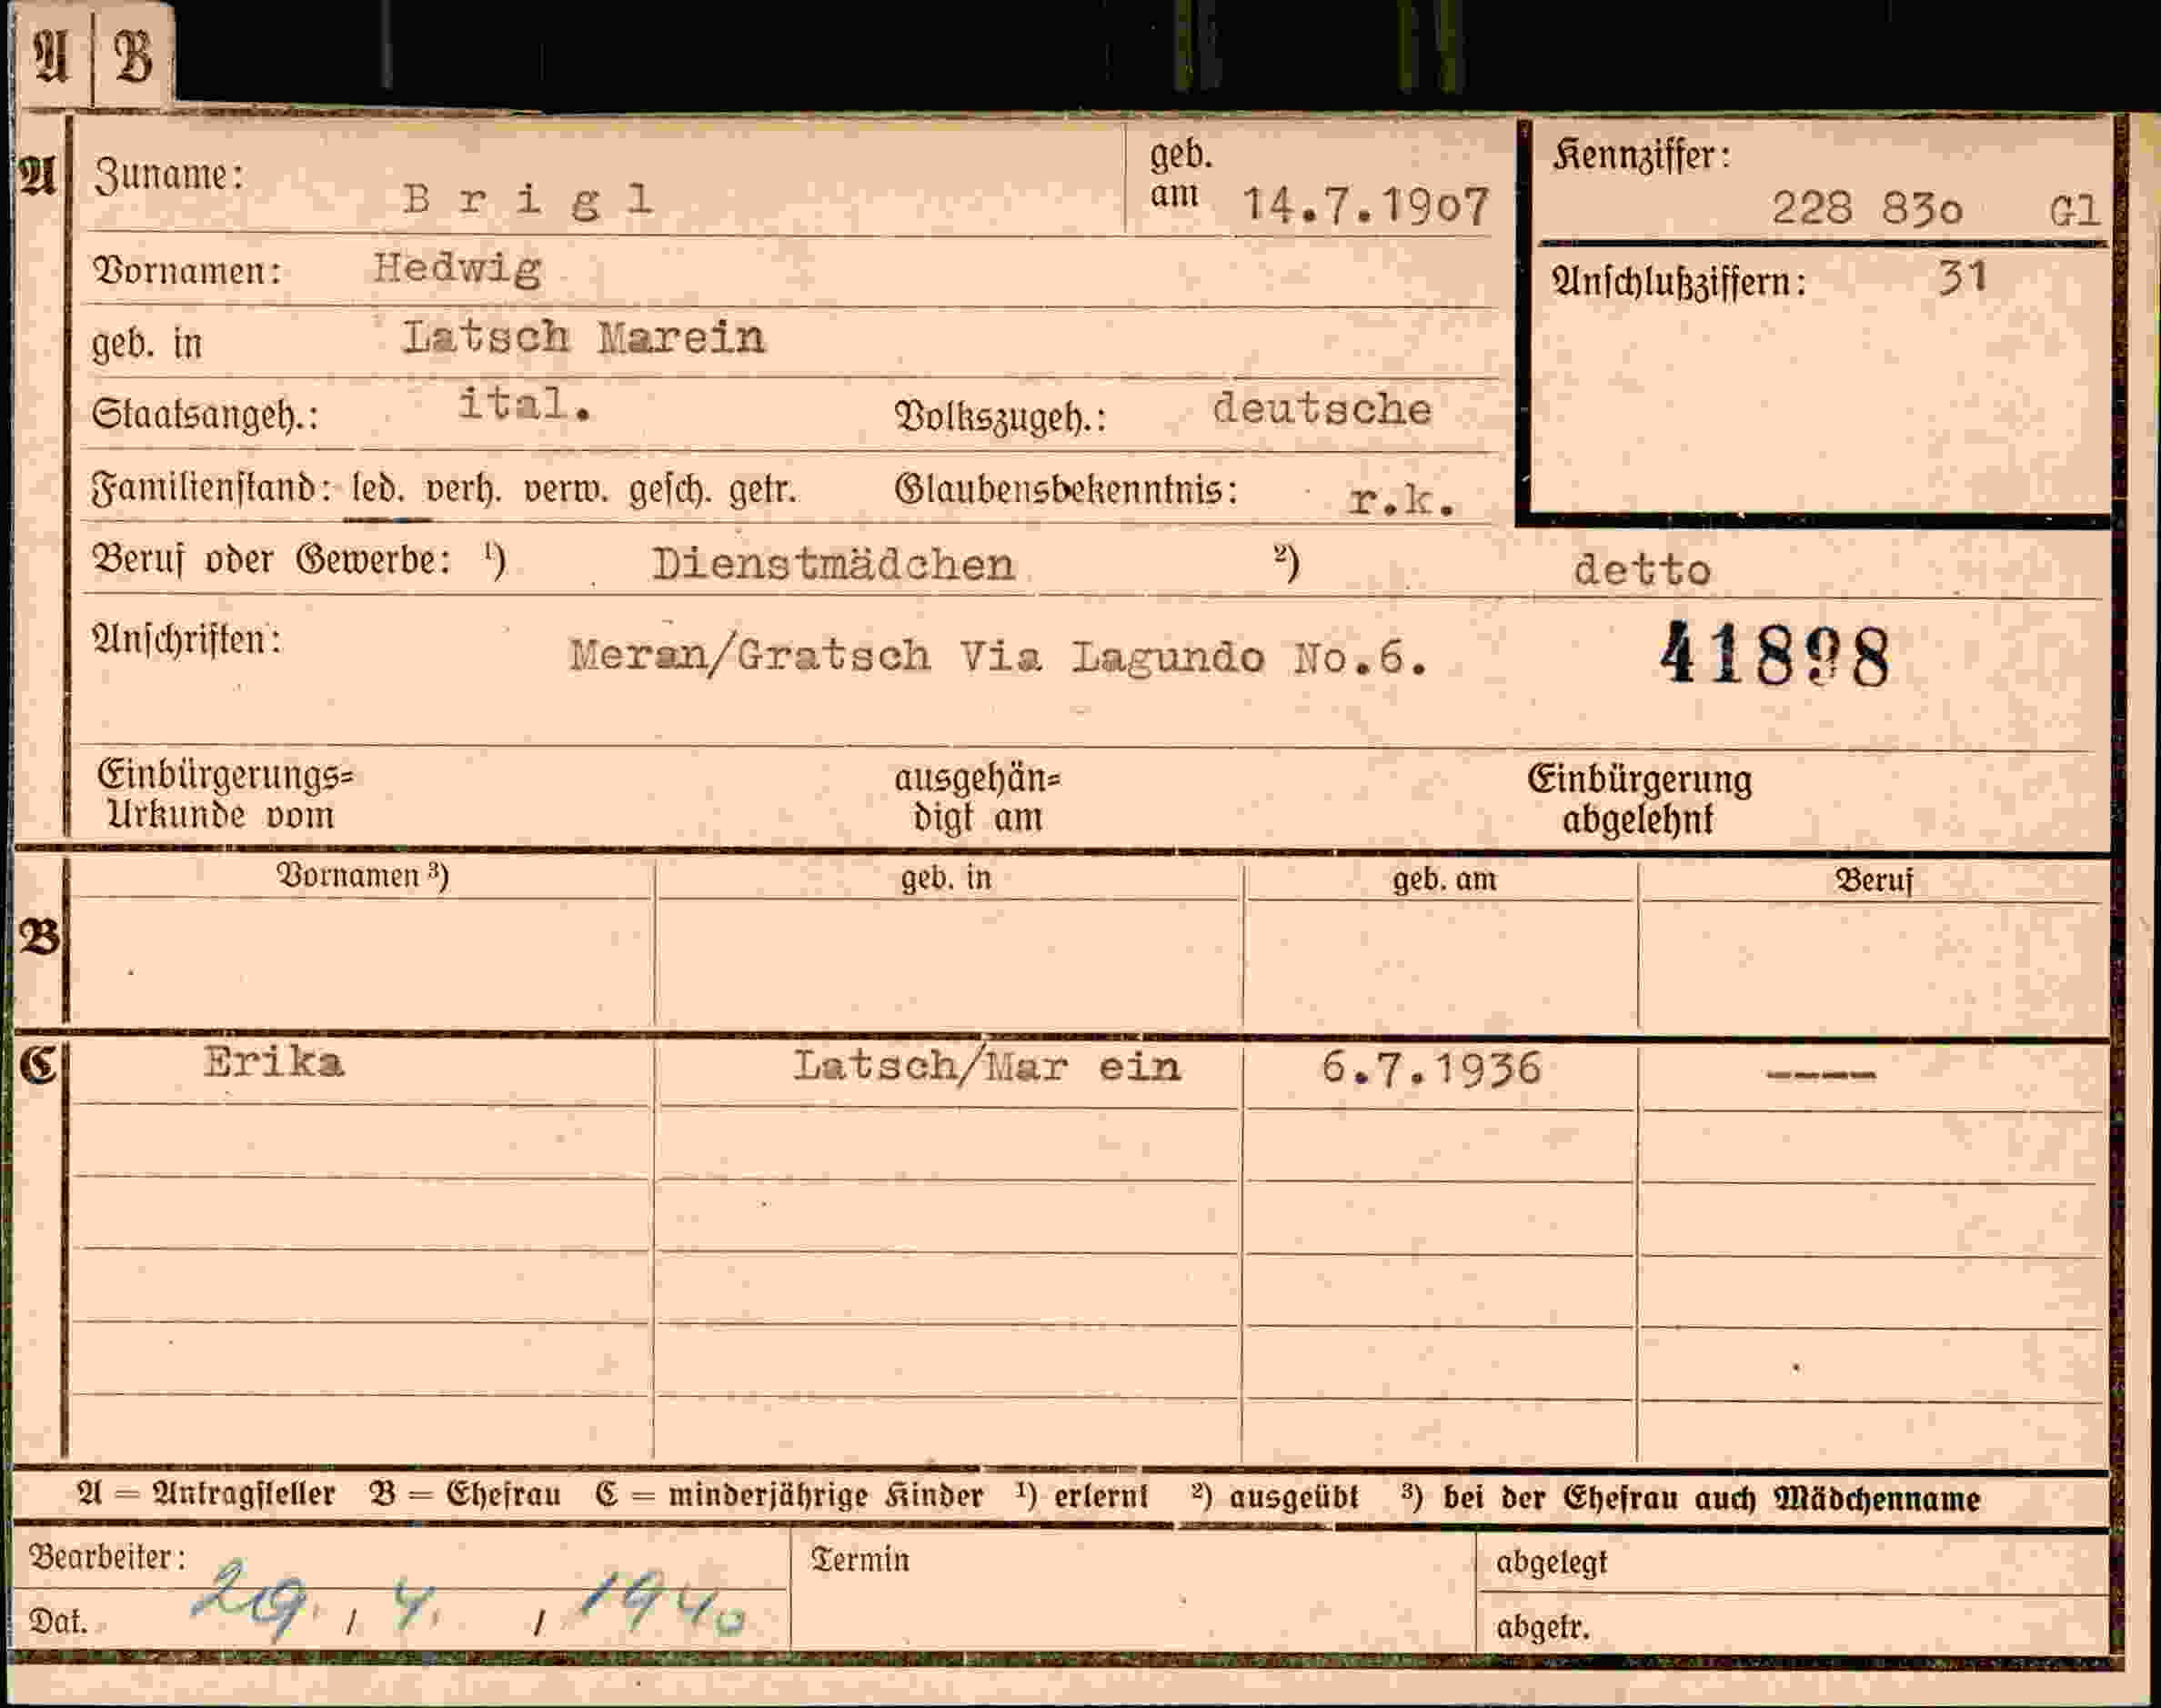 A B
A Zuname: Brigl geb. am 14.7.19o7 Kennziffer: 228 83o Gl
Vornamen: Hedwig Anschlußziffern: 31
geb. in Latsch Marein
Staatsangeh.: ital. Volkszugeh.: deutsche
Familienstand: led. verh. verw. gesch. getr. Glaubensbekenntnis: r.k.
Beruf oder Gewerbe: ¹) Dienstmädchen ²) detto
Anschriften: Meran/Gratsch Via Lagundo No.6. 41898
Einbürgerungs= ausgehän= Einbürgerung
Urkunde vom digt am abgelehnt
Vornamen ³) geb. in geb. am Beruf
B
C Erika Latsch/Mar ein 6.7.1936 ----
A = Antragsteller B = Ehefrau C = minderjährige Kinder ¹) erlernt ²) ausgeübt ³) bei der Ehefrau auch Mädchenname
Bearbeiter: Termin abgelegt
Dat. 29. / 4. / 1940 abgetr.